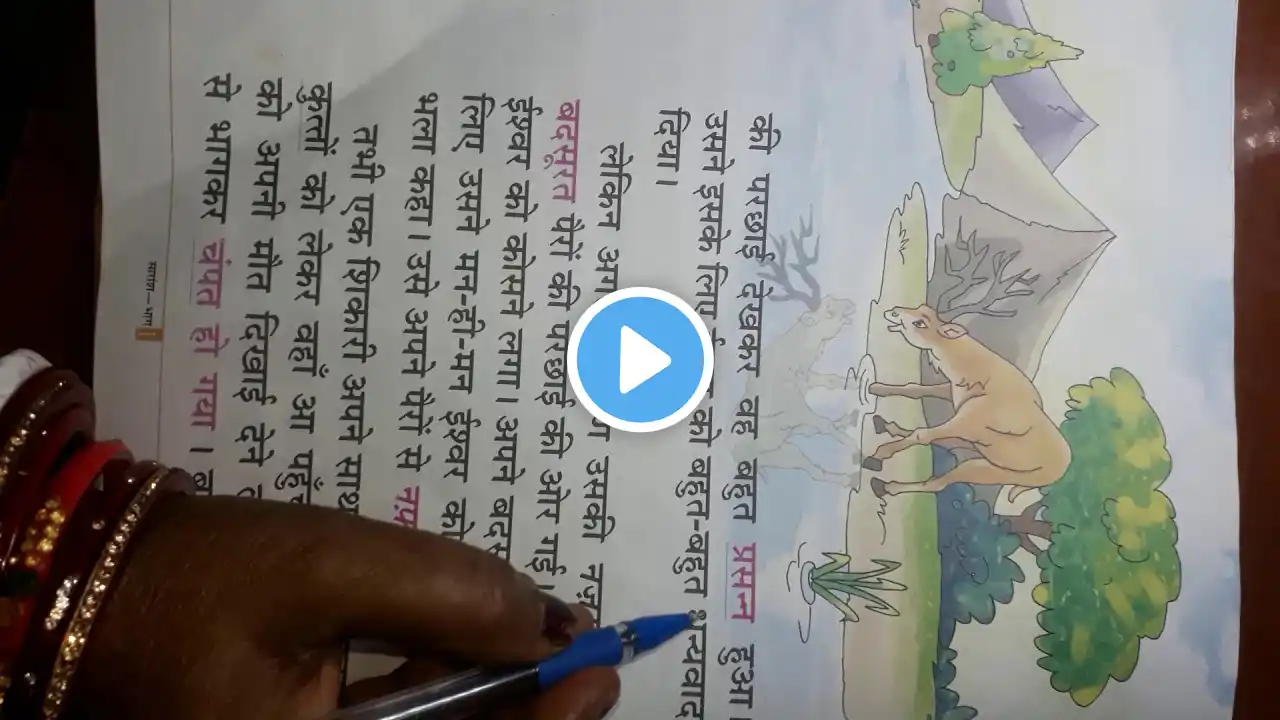 की परछाई देखकर वह बहुत प्रसन्न हुआ।
उसने इसके लिए को बहुत-बहुत धन्यवाद
दिया।
लेकिन उसकी
बदसूरत पैरों की परछाई की ओर गई।
ईश्वर को कोसने लगा। अपने
लिए उसने मन-ही-मन ईश्वर को
भला कहा। उसे अपने पैरों से
तभी एक शिकारी अपने साथ
कुत्तों को लेकर वहाँ आ
को अपनी मौत दिखाई देने
से भागकर चंपत हो गया।
सारांश—भाग 1